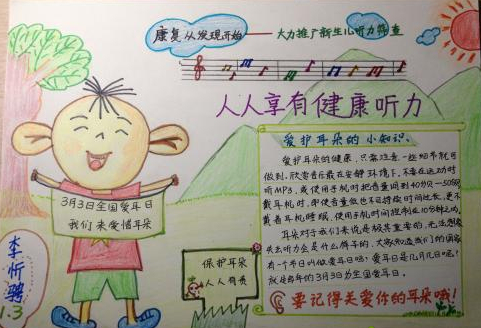 康复从发现开始——大力推广新生儿听力筛查
人人享有健康听力
爱护耳朵的小知识
爱护耳朵的健康,只需注意一些细节就可
做到。欣赏音乐最在安静环境下,不要在运动时
听MP3,或使用手机时把音量调到40分贝-50分贝
戴耳机时,即使音量低也不过持续时间过长,更不
戴着耳机睡眠,使用手机时间控制在10分钟之内。
耳朵对于我们来说是极其重要的,无法想象
失去听力会是什么样子的,大家知道我们的国家
有一个节日叫做爱耳日吗?爱耳日是几月几日呢?
就是每年的3月3日为全国爱耳日。
要记得关爱你的耳朵哦!
3月3日全国爱耳日
我们来爱惜耳朵
保护耳朵
人人有责
李忻骋
1.3